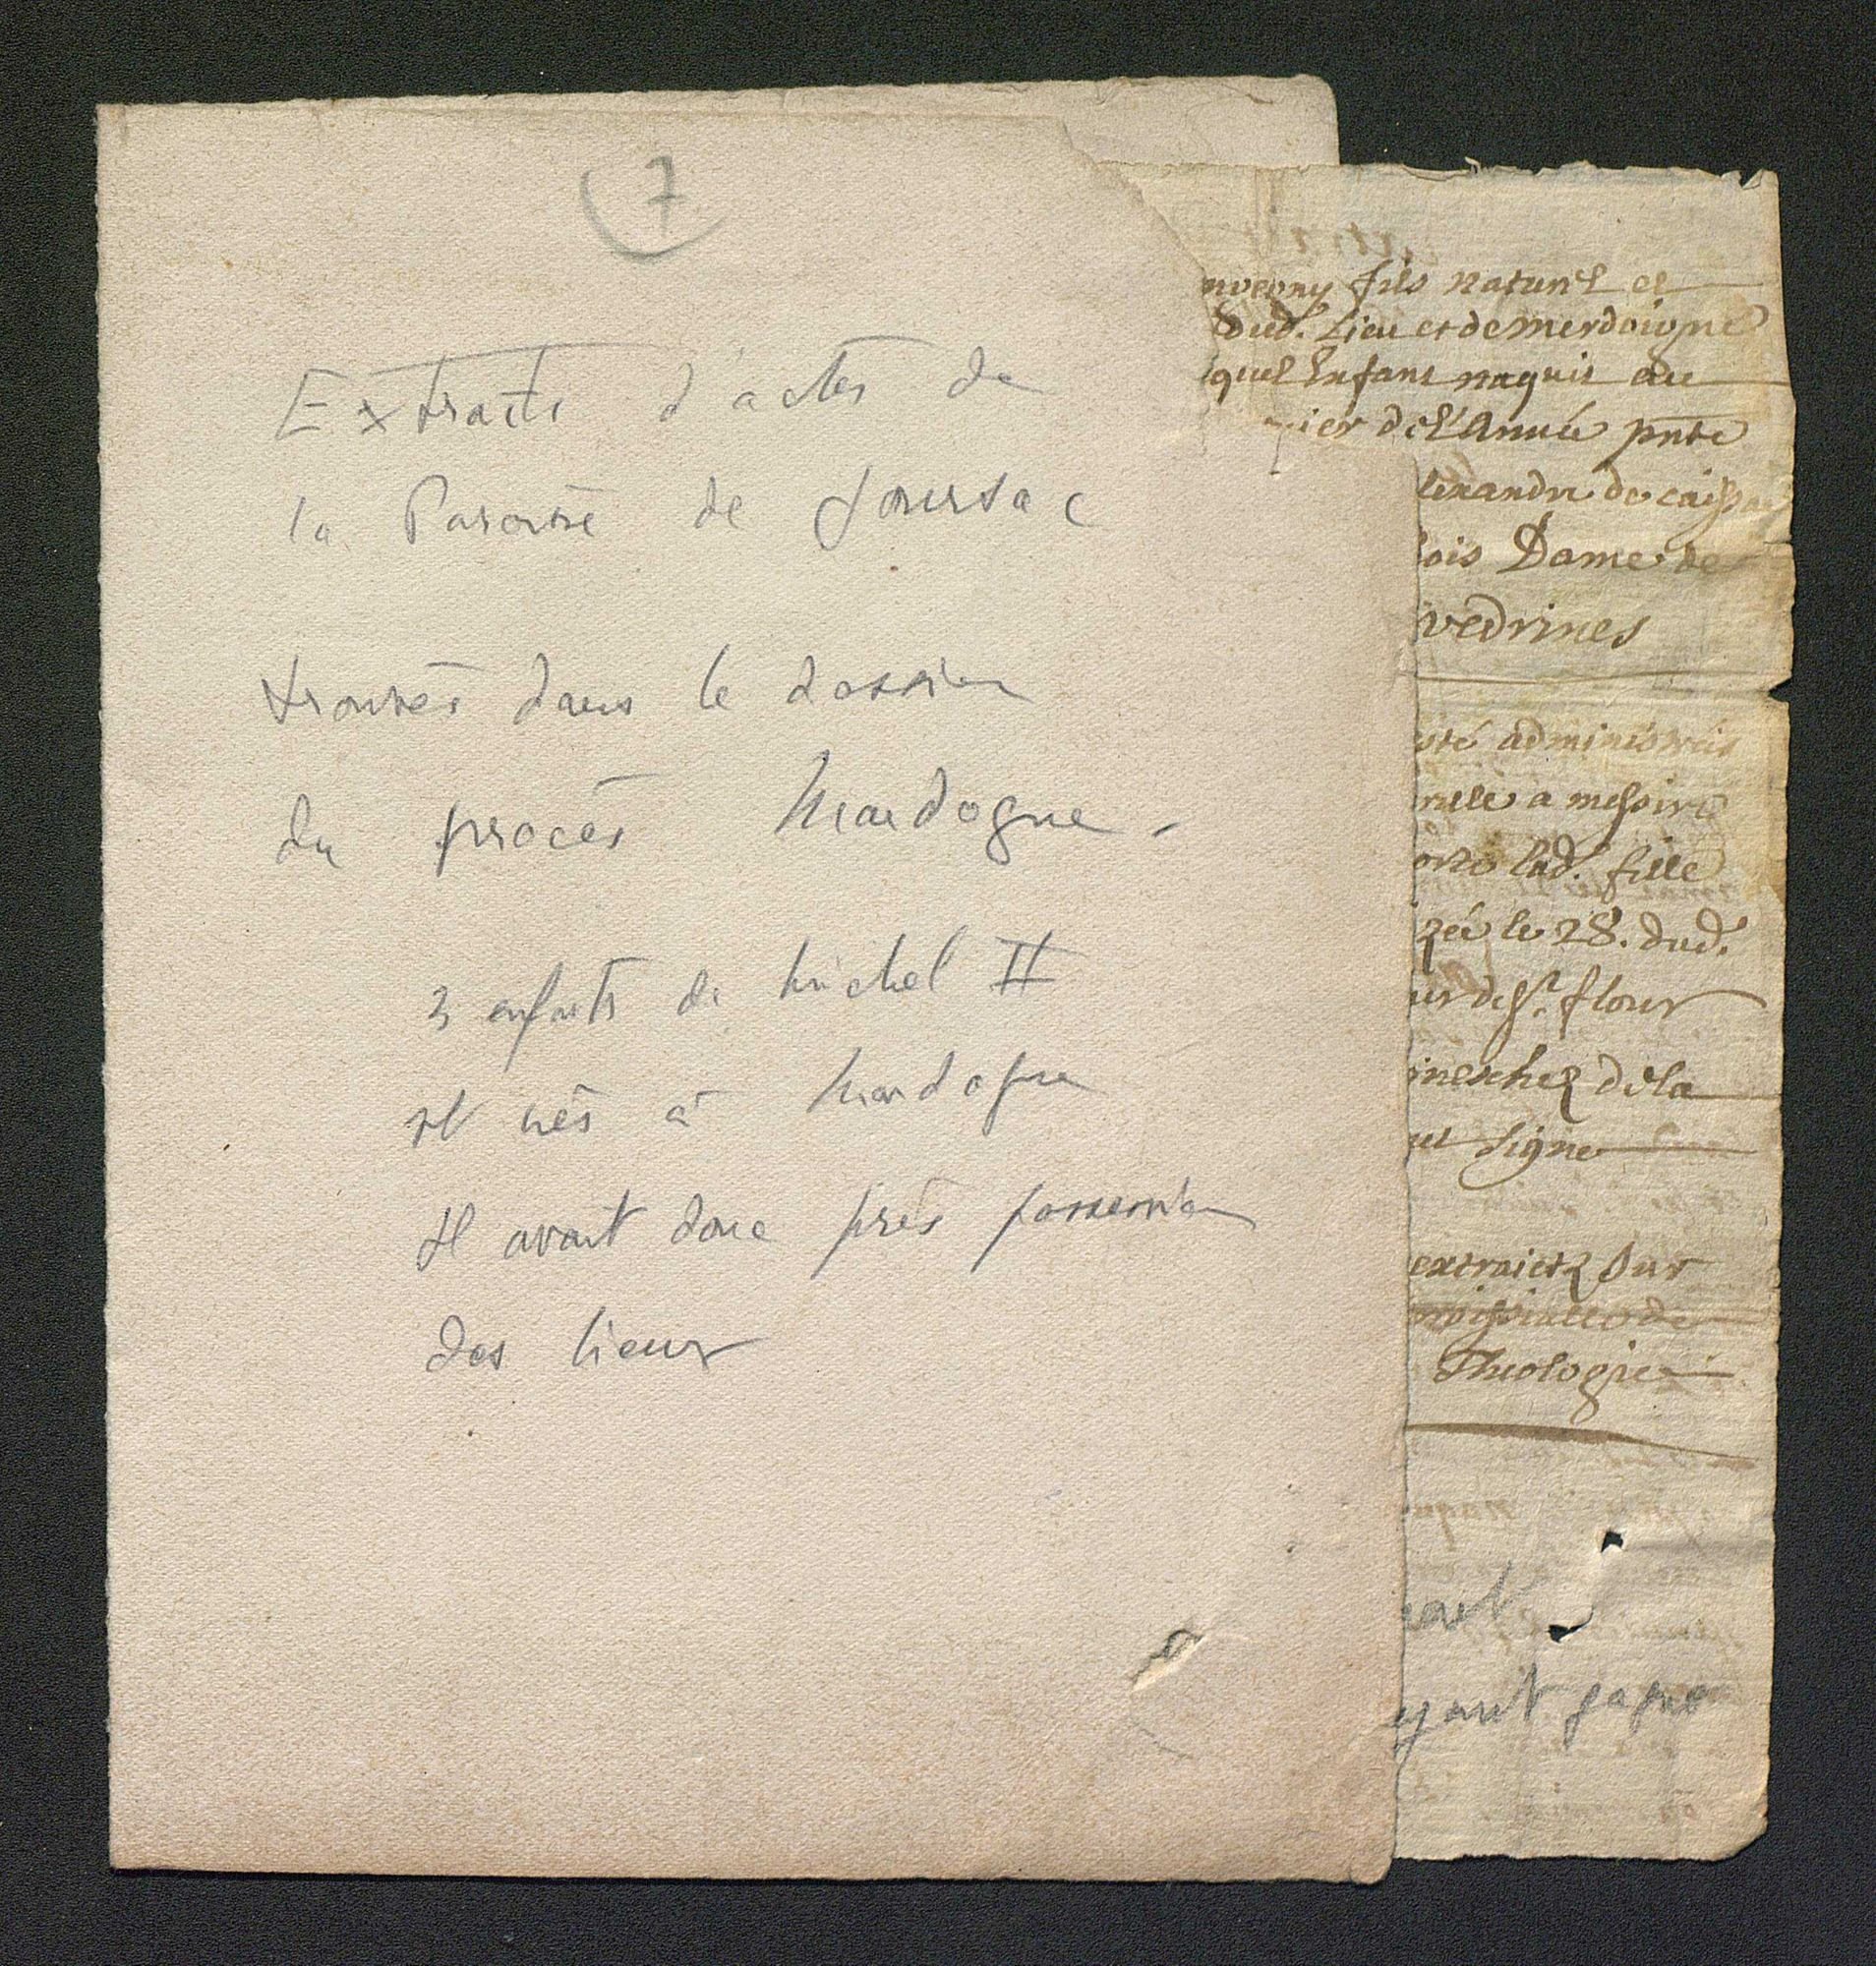 7
Extraits d'actes de
la Paroisse de Joursac
trouvés dans le dossier
du procès Mardogne -
3 enfants de Michel II
st nés à Mardogne
Il avait donc pris possession
des lieux
fils naturel et
dud. Lieu et de merdoigne
quel Enfant naquit au
de l'Année pnte
lexandre de caissac
ois Dame de
vedrines
esté administré
a messire
lad. fille
zée le 28. dud.
ur de St. flour
de la
signe
extraictz sur
de
Theologie
ayant gagné